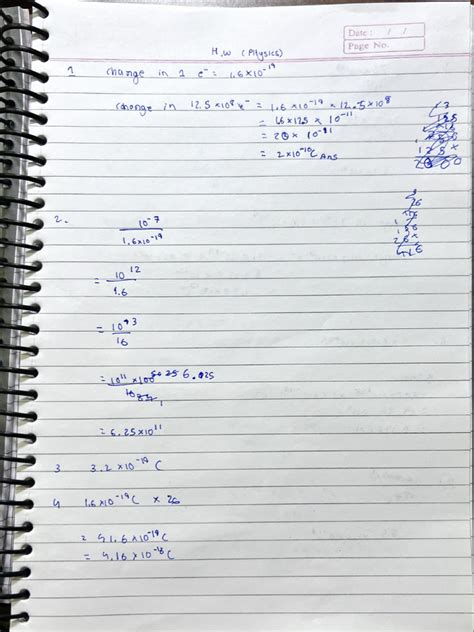 Date : / /
Page No.
H.W (Physics)
1 Charge in 1 e⁻ = 1.6×10⁻¹⁹
Charge in 12.5×10⁸ e⁻ = 1.6×10⁻¹⁹ × 12.5×10⁸
= 16×125 × 10⁻¹¹
= 20 × 10⁻¹¹
= 2×10⁻¹⁰C Ans
2. 10⁻⁷
1.6×10⁻¹⁹
= 10¹²
1.6
= 10¹³
16
= 10¹¹ × 100 6.025
= 6.25×10¹¹
3 3.2×10⁻¹⁹ C
4 1.6×10⁻¹⁹ C × 26
= 41.6×10⁻¹⁹ C
= 4.16×10⁻¹⁸ C